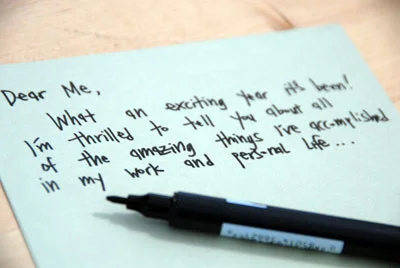 Dear Me,
What an exciting year it's been!
I'm thrilled to tell you about all
of the amazing things I've accomplished
in my work and personal life...